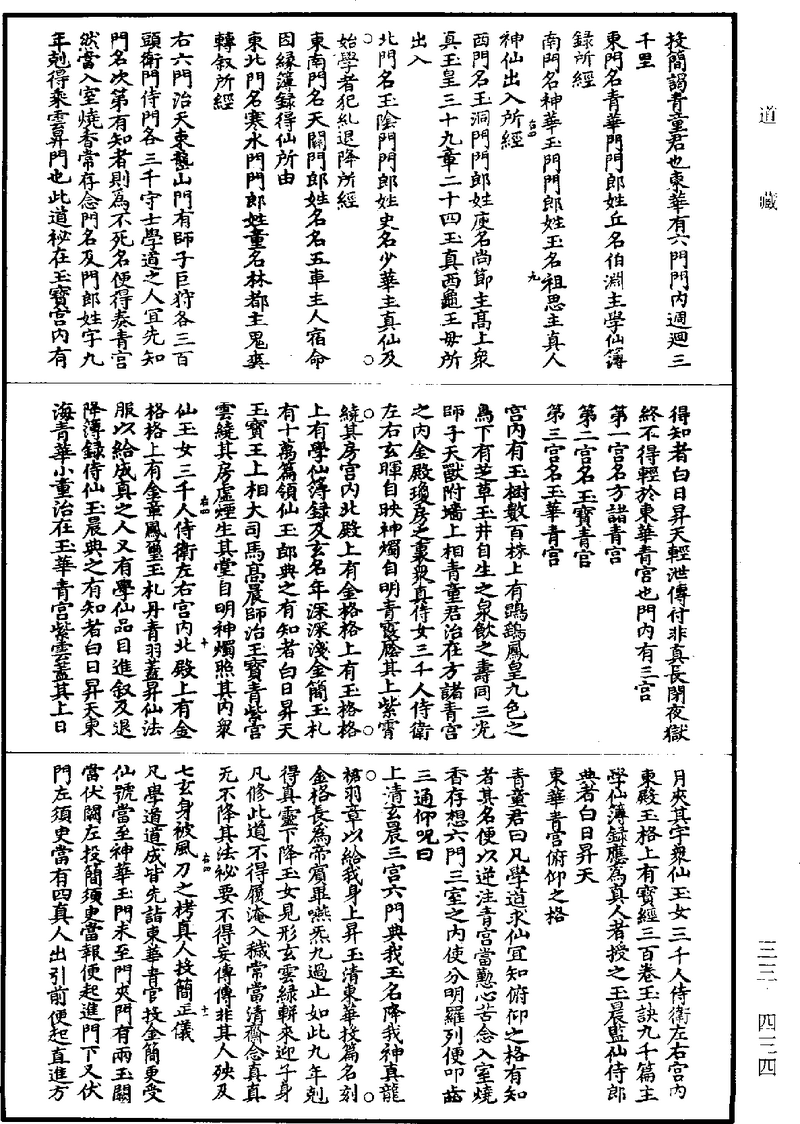 道藏
三三·四三四
投簡謁青童君也東華有六門門內週迴三
千里
東門名青華門門郎姓丘名伯淵主學仙簿
錄所經
南門名神華玉門門郎姓玉名祖思主真人
神仙出入所經
西門名玉洞門門郎姓庾名尚節主高上衆
真玉皇三十九章二十四玉真西龜王母所
出入
北門名玉陰門門郎姓史名少華主真仙及
始學者犯糺退降所經
東南門名天關門郎姓名名五車主人宿命
因緣簿錄得仙所由
東北門名寒水門門郎姓童名林都主鬼爽
轉叙所經
右六門治天東龔山門有師子巨狩各三百
頭衛門侍門各三千守士學道之人冝先知
門名次第有知者則為不死名便得奏青宮
然當入室燒香常存念門名及門郎姓字九
年剋得乘雲昇門也此道祕在玉寶宮內有
得知者白日昇天輕泄傳付非真長閉夜獄
終不得輕於東華青宮也門內有三宮
第一宮名方諸青宮
第二宮名玉寶青宮
第三宮名玉華青宮
宮內有玉樹數百株上有鵾鷄鳳皇九色之
鳥下有芝草玉井自生之泉飲之壽同三光
師子天獸附墻上相青童君治在方諸青宮
之內金殿瓊房之裏衆真侍女三千人侍衛
左右玄暉自映神燭自明青霞廕其上紫霄
繞其房宮內北殿上有金格格上有玉格格
上有學仙簿錄及玄名年深深淺金簡玉札
有十萬篇領仙玉郎典之有知者白日昇天
玉寶王上相大司馬高晨師治玉寶青紫宮
雲繞其房虛煙生其堂自明神燭照其內衆
仙玉女三千人侍衛左右宮內北殿上有金
格格上有金章鳳璽玉札丹青羽蓋昇仙法
服以給成真之人又有學仙品目進叙及退
降薄錄侍仙玉晨典之有知者白日昇天東
海青華小童治在玉華青宮紫雲蓋其上日
月夾其宇衆仙玉女三千人侍衛左右宮內
東殿玉格上有寶經三百卷玉訣九千篇主
學仙簿錄應為真人者授之玉晨監仙侍郎
典者白日昇天
東華青宮俯仰之格
青童君曰凡學道求仙宜知俯仰之格有知
者其名便以逆注青宮當懃心苦念入室燒
香存想六門三室之內使分明羅列便叩齒
三通仰呪曰
上清玄晨三宮六門典我玉名降我神真龍
裙羽章以給我身上昇玉清東華投篇名刻
金格長為帝賓畢嚥炁九過止如此九年剋
得真靈下降玉女見形玄雲綠軿來迎子身
凡修此道不得履淹入穢常當清齋念真真
无不降其法祕要不得妄傳傳非其人殃及
七玄身被風刀之栲真人投簡正儀
凡學道道成皆先詣東華青宮投金簡更受
仙號當至神華玉門未至門夾門有兩玉闕
當伏闕左投簡須臾當報便起進門下又伏
門左須臾當有四真人出引前便起直進方